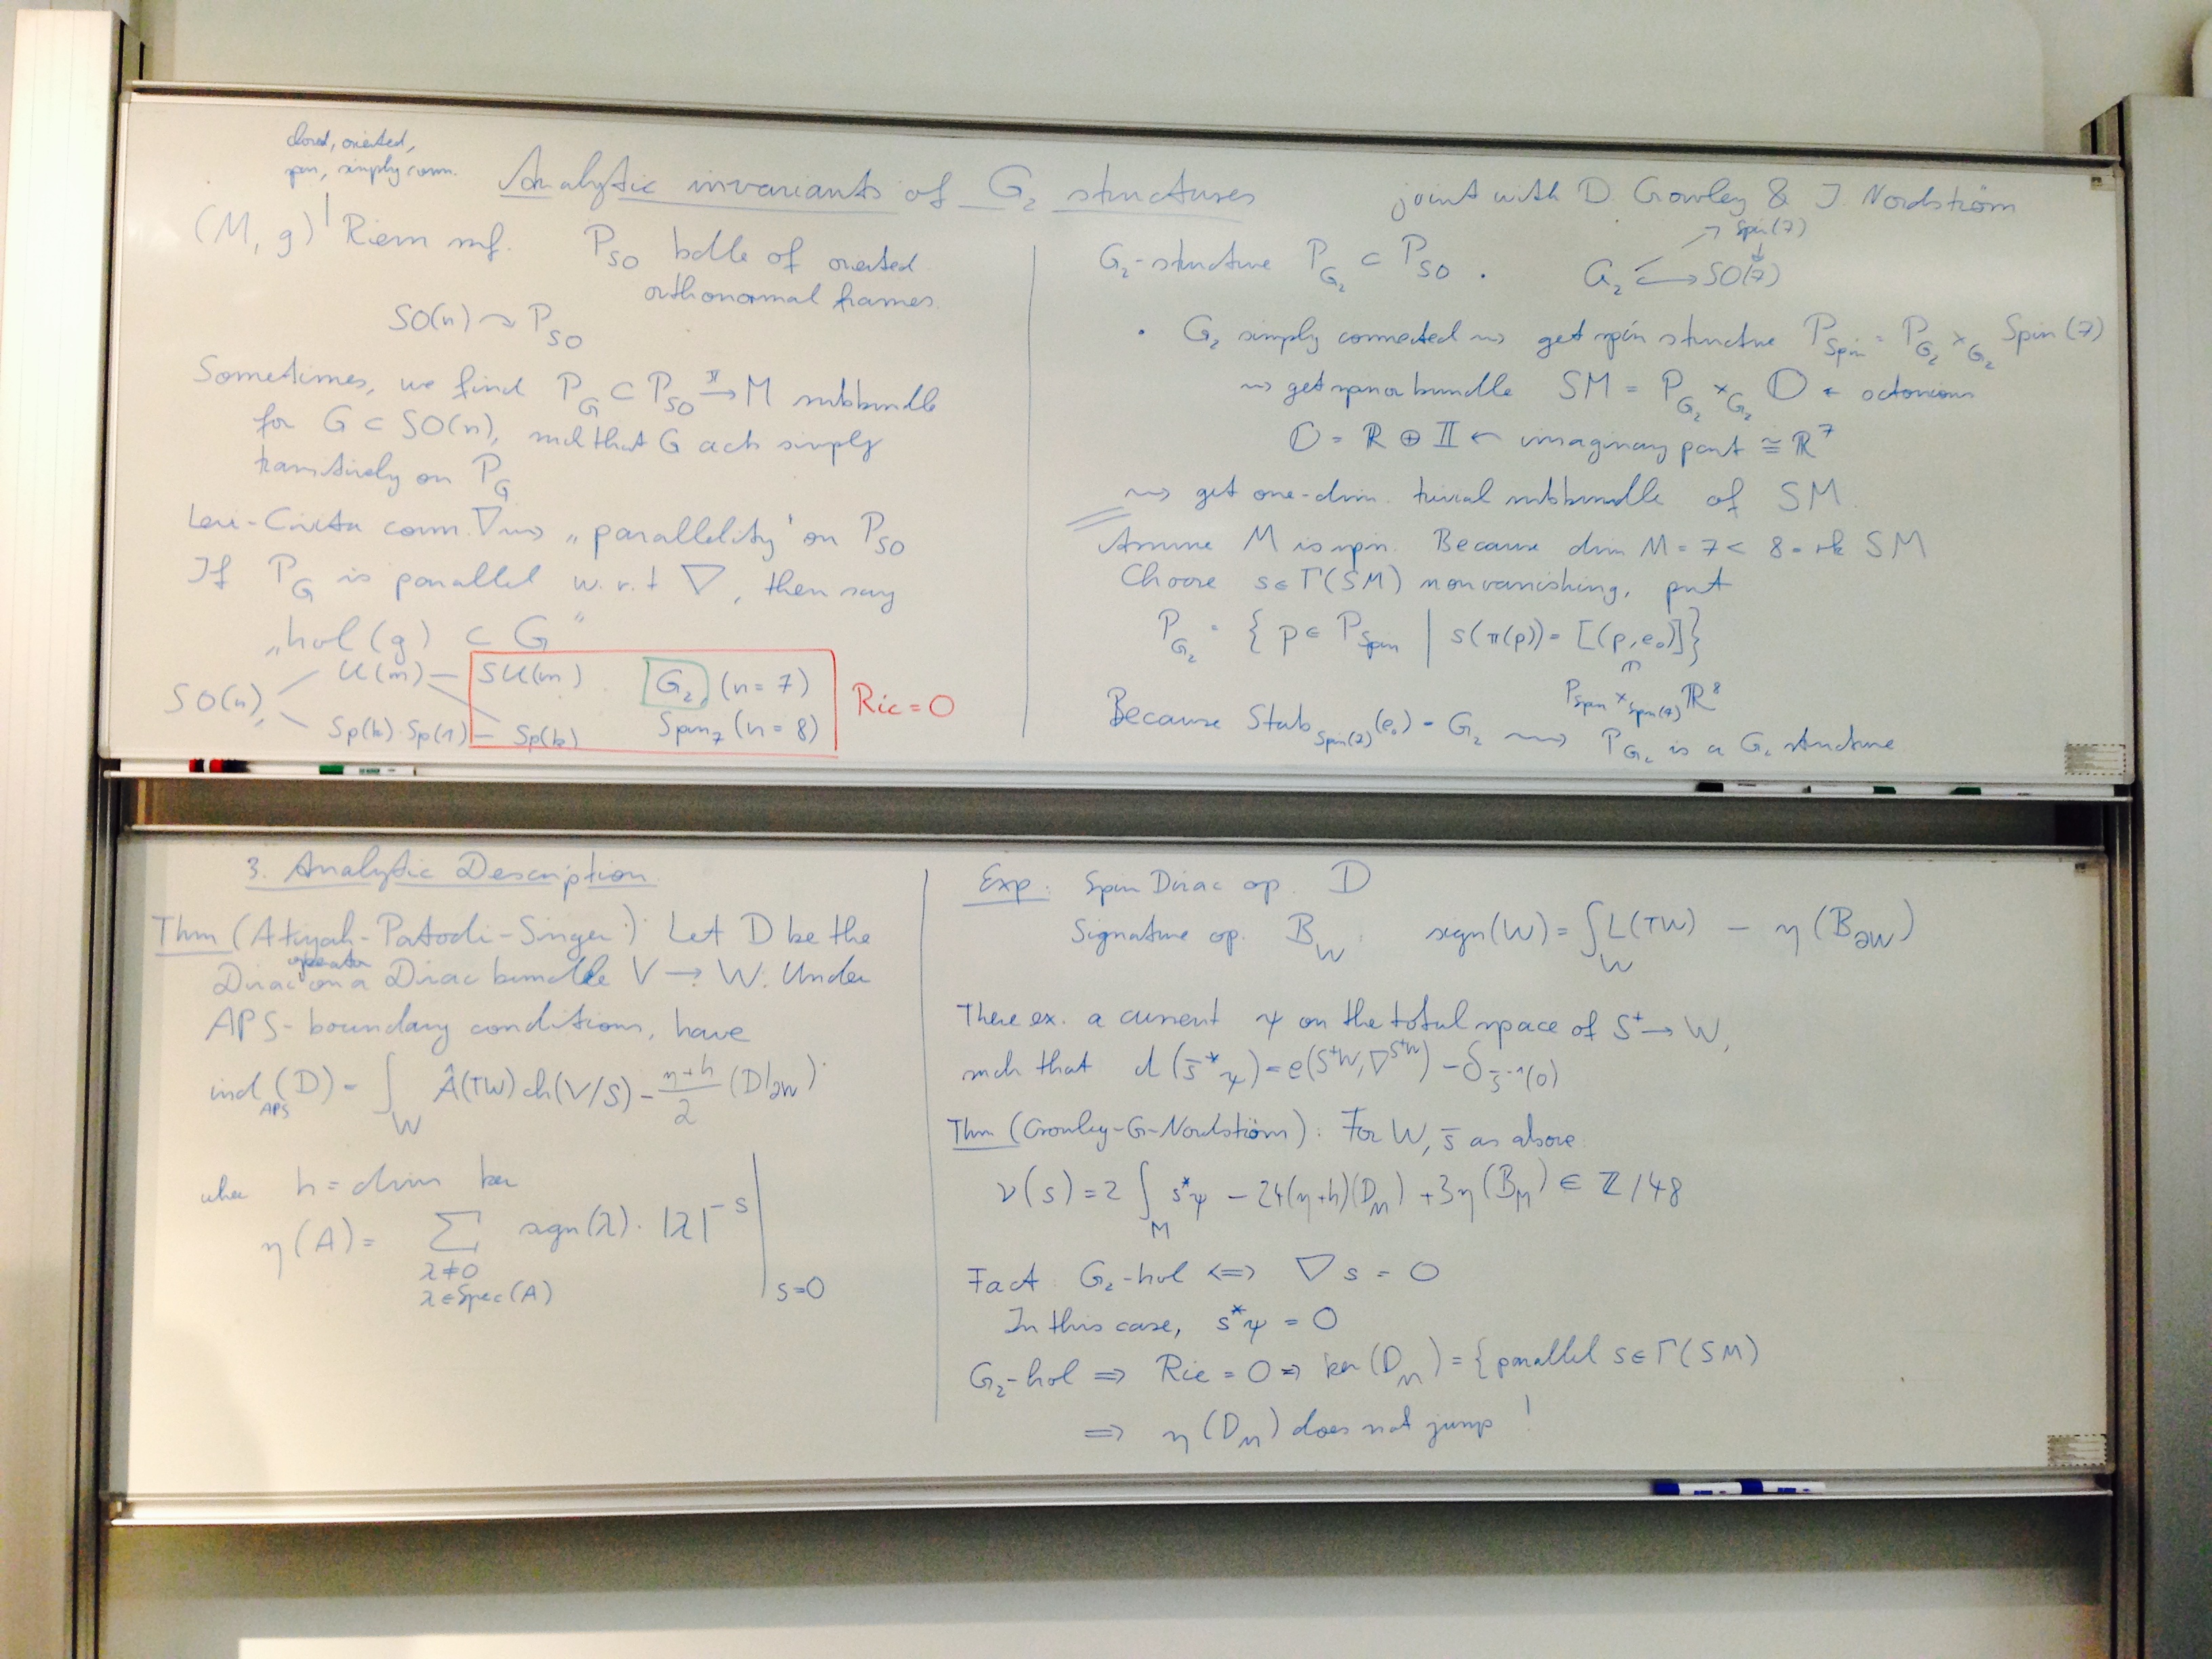 closed, oriented,
spin, simply conn.
Analytic invariants of G₂ structures
joint with D. Crowley & J. Nordström
(M, g) Riem mf. P_SO bdle of oriented
orthonormal frames.
SO(n) ↷ P_SO
Sometimes, we find P_G ⊂ P_SO →^π M subbundle
for G ⊂ SO(n), such that G acts simply
transitively on P_G
Levi-Civita conn. ∇ ⇝ „parallelity" on P_SO
If P_G is parallel w.r.t ∇, then say
„hol(g) ⊂ G"
U(m) — SU(m) G₂ (n=7)
SO(n) Ric = 0
Sp(k)·Sp(1) — Sp(k) Spin₇ (n=8)
G₂-structure P_G₂ ⊂ P_SO . G₂ ↪ SO(7)
↗ Spin(7)
↓
• G₂ simply connected ⇝ get spin structure P_Spin = P_G₂ ×_G₂ Spin(7)
⇝ get spinor bundle SM = P_G₂ ×_G₂ 𝕆 ← octonions
𝕆 = ℝ ⊕ 𝕀 ← imaginary part ≅ ℝ⁷
⇝ get one-dim. trivial subbundle of SM
Assume M is spin. Because dim M = 7 < 8 = rk SM
Choose s ∈ Γ(SM) nonvanishing, put
P_G₂ = { p ∈ P_Spin | s(π(p)) = [(p, e₀)]}
∩
P_Spin ×_Spin(7) ℝ⁸
Because Stab_Spin(7)(e₀) = G₂ ⇝ P_G₂ is a G₂ structure
3. Analytic Description
Thm (Atiyah-Patodi-Singer): Let D be the
operator
Dirac on a Dirac bundle V → W. Under
APS-boundary conditions, have
ind_APS(D) = ∫_W Â(TW) ch(V/S) − (η+h)/2 (D|_∂W)
where h = dim ker
η(A) = ∑ sign(λ)·|λ|^{-s} |_{s=0}
λ≠0
λ∈Spec(A)
Exp: Spin Dirac op. D
Signature op. B_W: sign(W) = ∫_W L(TW) − η(B_∂W)
There ex. a current ψ on the total space of S⁺ → W,
such that d(s̄*ψ) = e(S⁺W, ∇^{S⁺W}) − δ_{s̄⁻¹(0)}
Thm (Crowley-G-Nordström): For W, s̄ as above
ν(s) = 2 ∫_M s*ψ − 24(η+h)(D_M) + 3η(B_M) ∈ ℤ/48
Fact: G₂-hol ⟺ ∇s = 0
In this case, s*ψ = 0
G₂-hol ⟹ Ric = 0 ⟹ ker(D_M) = { parallel s ∈ Γ(SM)
⟹ η(D_M) does not jump!